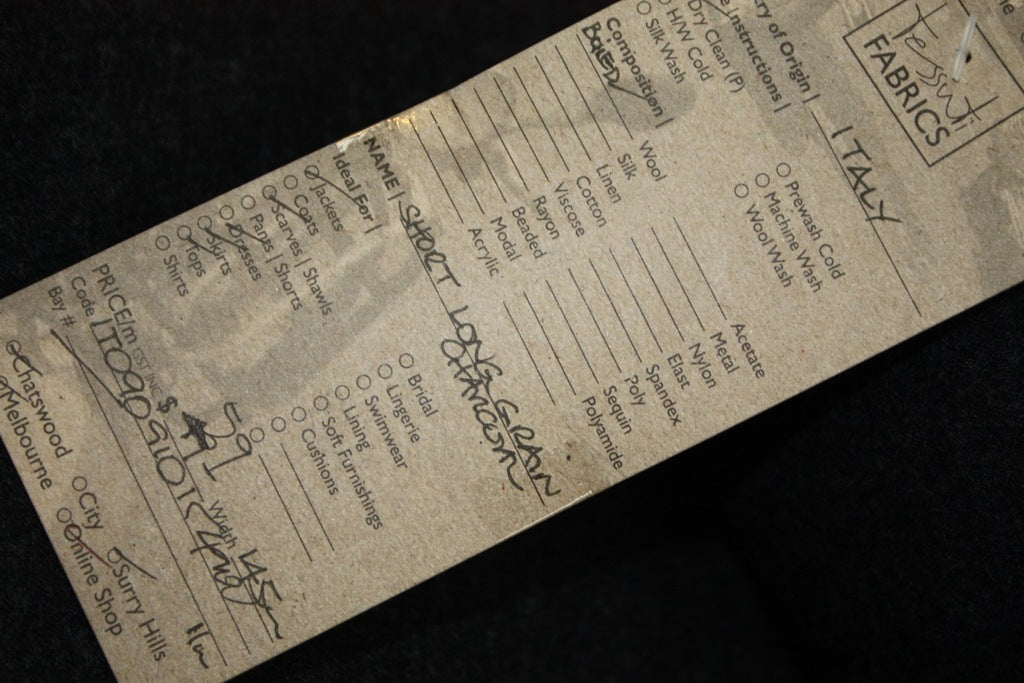 Tessuti
FABRICS
ry of Origin | ITALY
Instructions |
Dry Clean (P)
H/W Cold
Silk Wash
Prewash Cold
Machine Wash
Wool Wash
Composition |
BOILED Wool
Silk
Linen
Cotton
Viscose
Rayon
Beaded
Modal
Acrylic
Acetate
Metal
Nylon
Elast
Spandex
Poly
Sequin
Polyamide
NAME | SHORT LONG GRAIN
Ideal For |
Jackets
Coats
Scarves | Shawls
Pants | Shorts
Dresses
Skirts
Tops
Shirts
Bridal
Lingerie
Swimwear
Lining
Soft Furnishings
Cushions
PRICE/m EST INC $ 59 Width 145cm
Code
Bay #
Chatswood
City
Surry Hills
Melbourne
Online Shop